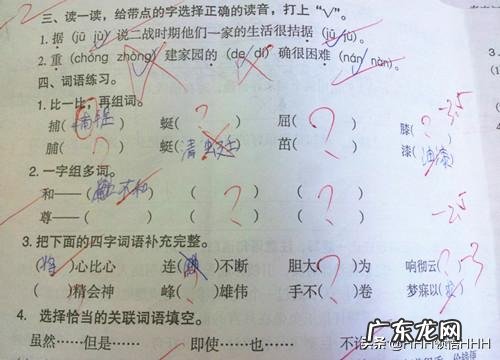 三、读一读，给带点的字选择正确的读音，打上"√"。
1. 据（jū jù）说二战时期他们一家的生活很拮据（jū jù）。
2. 重（chóng zhòng）建家园的（de dí）确很困难（nán nàn）。
四、词语练习。
1. 比一比，再组词。
捕（捕捉） 蜓（？） 屈（？） 膝（？）
脯（？） 蜓（青虫廷） 茁（） 漆（油漆） -3.5
2. 一字组多词。
和——（不和）（？）（？）（？）
尊——（ ）（ ）（ ）（ ） -2.5
3. 把下面的四字词语补充完整。
（将）心比心 连（ ）不断 胆大（？）为 响彻云（？） -3
（ ）精会神 峰（？）雄伟 手不（ ）卷 梦寐以（求）
4. 选择恰当的关联词语填空。
虽然……但是…… 即使……也…… 不论
广东龙网
头条 @HHH领悟HHH